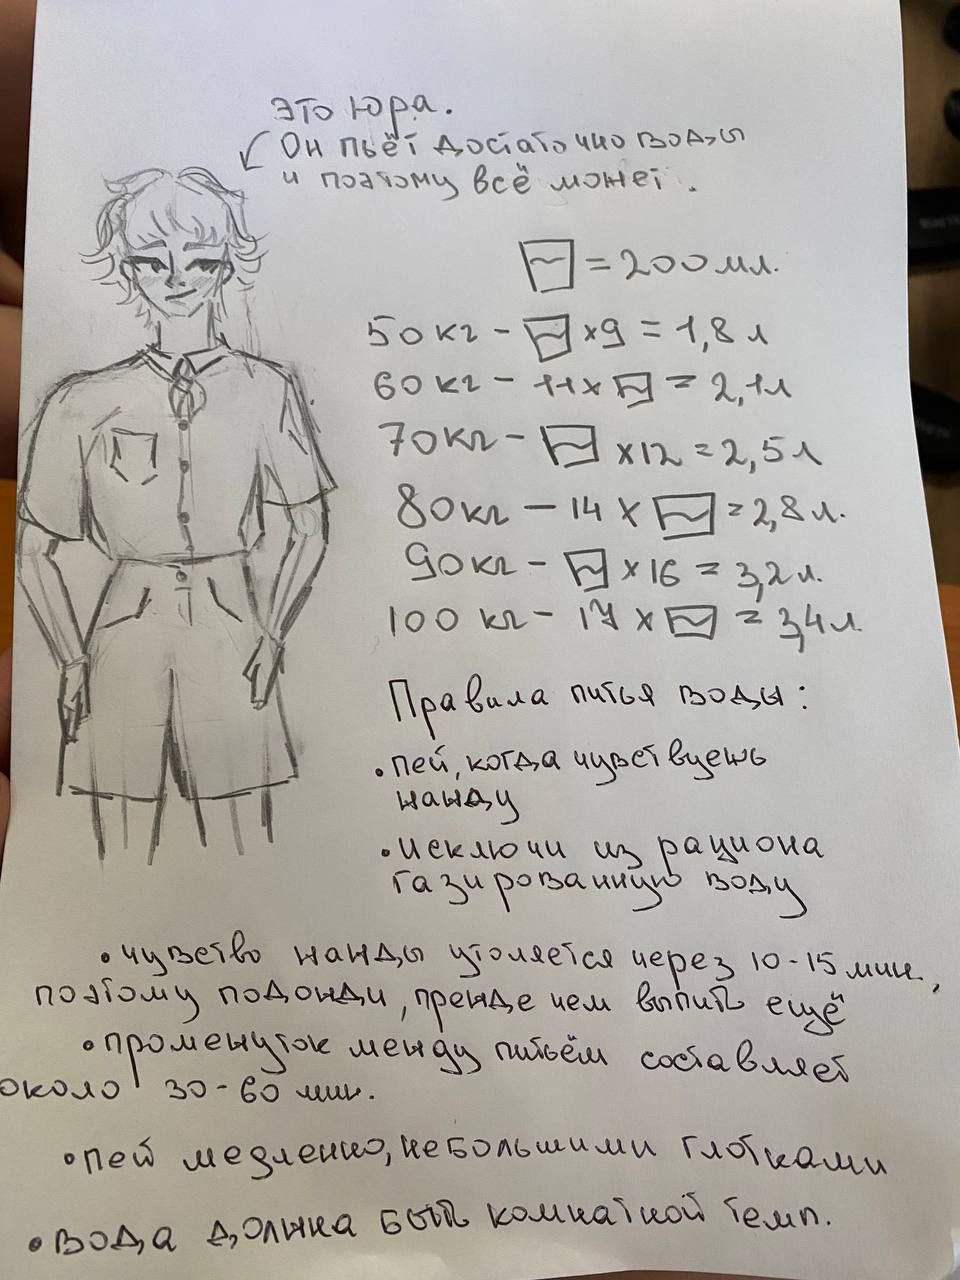 Это Юра.
Он пьёт достаточно воды
и поэтому всё может.
= 200 мл.
50 кг - x9 = 1,8 л
60 кг - 11x = 2,1 л
70 кг - x12 = 2,5 л
80 кг - 14 x = 2,8 л.
90 кг - x16 = 3,2 л.
100 кг - 17 x = 3,4 л.
Правила питья воды:
• пей, когда чувствуешь
жажду
• исключи из рациона
газированную воду
• чувство жажды утоляется через 10-15 мин.,
поэтому подожди, прежде чем выпить ещё
• промежуток между питьём составляет
около 30-60 мин.
• пей медленно, небольшими глотками
• вода должна быть комнатной темп.